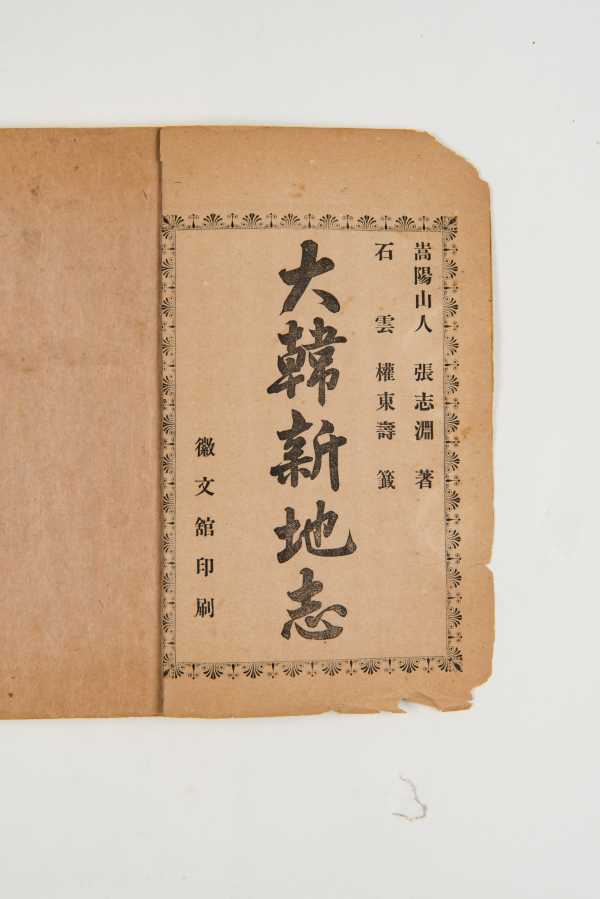 嵩陽山人 張志淵 著
石雲 權東壽 籤
大韓新地志
徽文舘印刷